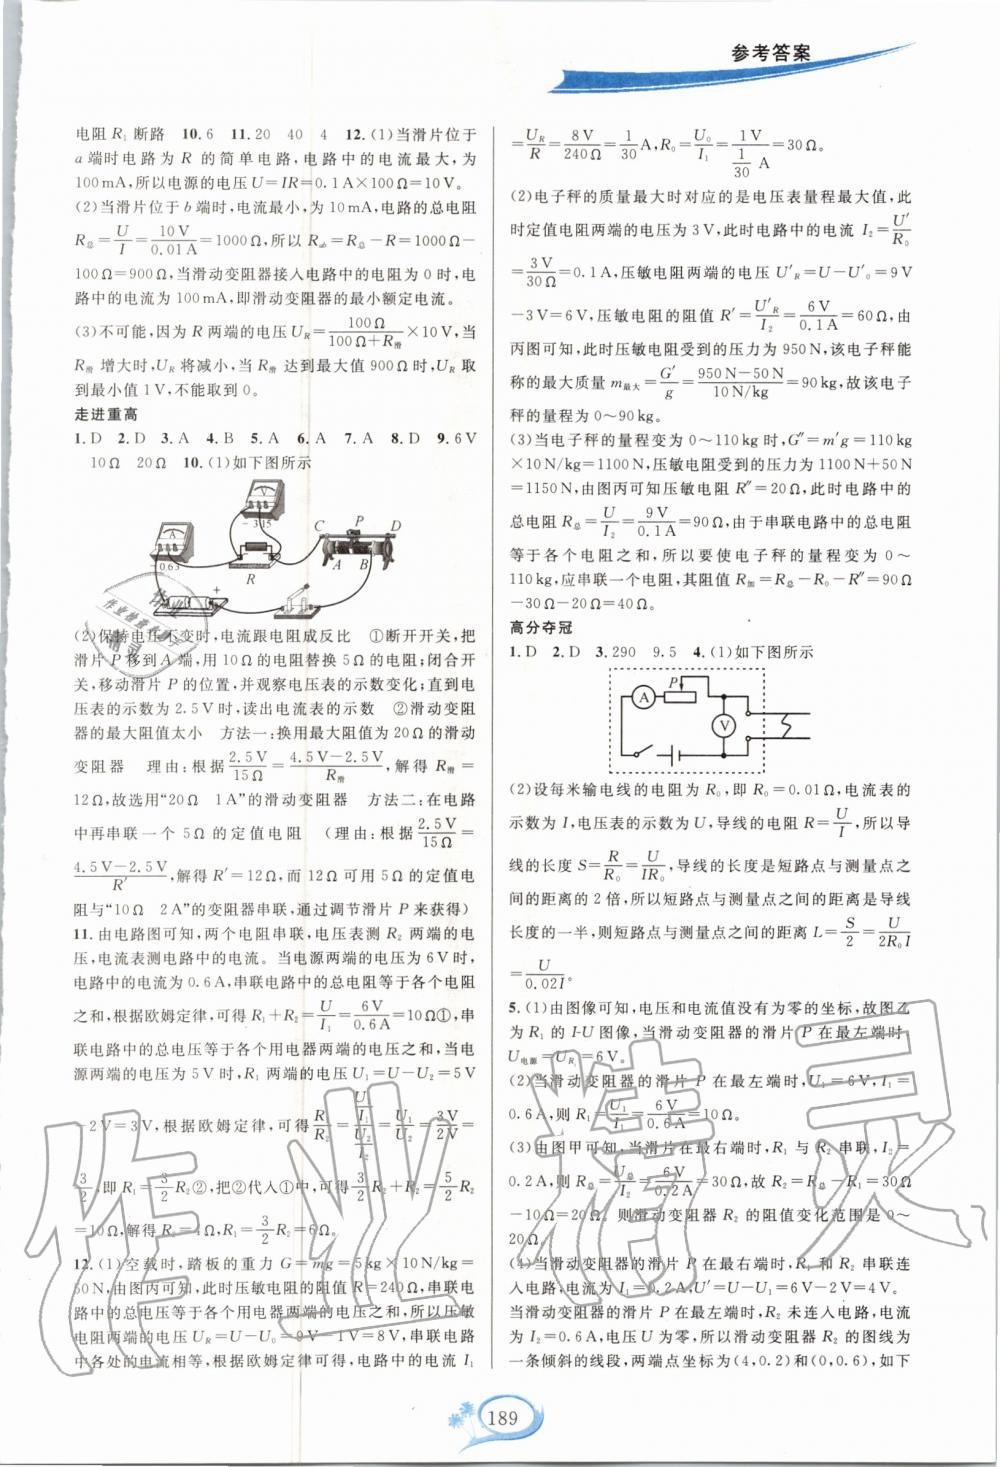 参考答案
电阻 R₁ 断路 10. 6 11. 20 40 4 12. (1)当滑片位于
a 端时电路为 R 的简单电路,电路中的电流最大,为
100 mA,所以电源的电压 U=IR=0.1 A×100 Ω=10 V.
(2)当滑片位于 b 端时,电流最小,为 10 mA,电路的总电阻
R总=U/I=10 V/0.01 A=1000 Ω,所以 R滑=R总-R=1000 Ω-
100 Ω=900 Ω,当滑动变阻器接入电路中的电阻为 0 时,电
路中的电流为 100 mA,即滑动变阻器的最小额定电流.
(3)不可能,因为 R 两端的电压 U_R=100 Ω/(100 Ω+R滑)×10 V,当
R滑 增大时,U_R 将减小,当 R滑 达到最大值 900 Ω 时,U_R 取
到最小值 1 V,不能取到 0.
走进重高
1. D 2. D 3. A 4. B 5. A 6. A 7. A 8. D 9. 6 V
10 Ω 20 Ω 10. (1)如下图所示
V
- 3 15
A
- 0.6 3
R
C P D
A B
- +
(2)保持电压不变时,电流跟电阻成反比 ①断开开关,把
滑片 P 移到 A 端,用 10 Ω 的电阻替换 5 Ω 的电阻;闭合开
关,移动滑片 P 的位置,并观察电压表的示数变化;直到电
压表的示数为 2.5 V 时,读出电流表的示数 ②滑动变阻
器的最大阻值太小 方法一:换用最大阻值为 20 Ω 的滑动
变阻器 理由:根据 2.5 V/15 Ω=(4.5 V-2.5 V)/R滑,解得 R滑=
12 Ω,故选用“20 Ω 1 A”的滑动变阻器 方法二:在电路
中再串联一个 5 Ω 的定值电阻 (理由:根据 2.5 V/15 Ω=
(4.5 V-2.5 V)/R′,解得 R′=12 Ω,而 12 Ω 可用 5 Ω 的定值电
阻与“10 Ω 2 A”的变阻器串联,通过调节滑片 P 来获得)
11. 由电路图可知,两个电阻串联,电压表测 R₂ 两端的电
压,电流表测电路中的电流。当电源两端的电压为 6 V 时,
电路中的电流为 0.6 A,串联电路中的总电阻等于各个电阻
之和,根据欧姆定律,可得 R₁+R₂=U/I₁=6 V/0.6 A=10 Ω①,串
联电路中的总电压等于各个用电器两端的电压之和,当电
源两端的电压为 5 V 时,R₁ 两端的电压 U₁=U-U₂=5 V
-2 V=3 V,根据欧姆定律,可得 R₁/R₂=(U₁/I)/(U₂/I)=U₁/U₂=3 V/2 V=
3/2,即 R₁=3/2 R₂②,把②代入①中,可得 3/2 R₂+R₂=5/2 R₂
=10 Ω,解得 R₂=4 Ω,R₁=3/2 R₂=6 Ω.
12. (1)空载时,踏板的重力 G=mg=5 kg×10 N/kg=
50 N,由图丙可知,此时压敏电阻的阻值 R=240 Ω,串联电
路中的总电压等于各个用电器两端的电压之和,所以压敏
电阻两端的电压 U_R=U-U₀=9 V-1 V=8 V,串联电路中
中各处的电流相等,根据欧姆定律可得,电路中的电流 I₁
=U_R/R=8 V/240 Ω=1/30 A,R₀=U₀/I₁=1 V/(1/30 A)=30 Ω.
(2)电子秤的质量最大时对应的是电压表量程的最大值,此
时定值电阻两端的电压为 3 V,此时电路中的电流 I₂=U′/R₀
=3 V/30 Ω=0.1 A,压敏电阻两端的电压 U′_R=U-U′₀=9 V
-3 V=6 V,压敏电阻的阻值 R′=U′_R/I₂=6 V/0.1 A=60 Ω,由
丙图可知,此时压敏电阻受到的压力为 950 N,该电子秤能
称的最大质量 m最大=G′/g=(950 N-50 N)/(10 N/kg)=90 kg,故该电子
秤的量程为 0～90 kg.
(3)当电子秤的量程变为 0～110 kg 时,G″=m′g=110 kg
×10 N/kg=1100 N,压敏电阻受到的压力为 1100 N+50 N
=1150 N,由图丙可知压敏电阻 R″=20 Ω,此时电路中的
总电阻 R总=U/I₂=9 V/0.1 A=90 Ω,由于串联电路中的总电阻
等于各个电阻之和,所以要使电子秤的量程变为 0～
110 kg,应串联一个电阻,其阻值 R加=R总-R₀-R″=90 Ω
-30 Ω-20 Ω=40 Ω.
高分夺冠
1. D 2. D 3. 290 9.5 4. (1)如下图所示
A P V
(2)设每米输电线的电阻为 R₀,即 R₀=0.01 Ω,电流表的
示数为 I,电压表的示数为 U,导线的电阻 R=U/I,所以导
线的长度 S=R/R₀=U/IR₀,导线的长度是短路点与测量点之
间的距离的 2 倍,所以短路点与测量点之间的距离是导线
长度的一半,则短路点与测量点之间的距离 L=S/2=U/2R₀I
=U/0.02I.
5. (1)由图像可知,电压和电流值没有为零的坐标,故图乙
为 R₁ 的 I-U 图像,当滑动变阻器的滑片 P 在最左端时,
U电源=U_R=6 V.
(2)当滑动变阻器的滑片 P 在最左端时,U₁=6 V,I₁=
0.6 A,则 R₁=U₁/I₁=6 V/0.6 A=10 Ω.
(3)由图甲可知,当滑片在最右端时,R₁ 与 R₂ 串联,I₂=
0.2 A,则 R总=U/I₂=6 V/0.2 A=30 Ω,R₂=R总-R₁=30 Ω
-10 Ω=20 Ω. 则滑动变阻器 R₂ 的阻值变化范围是 0～
20 Ω.
(4)当滑动变阻器的滑片 P 在最右端时,R₁ 和 R₂ 串联连
入电路,电流为 I₁=0.2 A,U′=U-U₁=6 V-2 V=4 V.
当滑动变阻器的滑片 P 在最左端时,R₂ 未连入电路,电流
为 I₂=0.6 A,电压 U 为零,所以滑动变阻器 R₂ 的图像为
一条倾斜的线段,两端点坐标为(4,0.2)和(0,0.6),如下
189
作业精灵